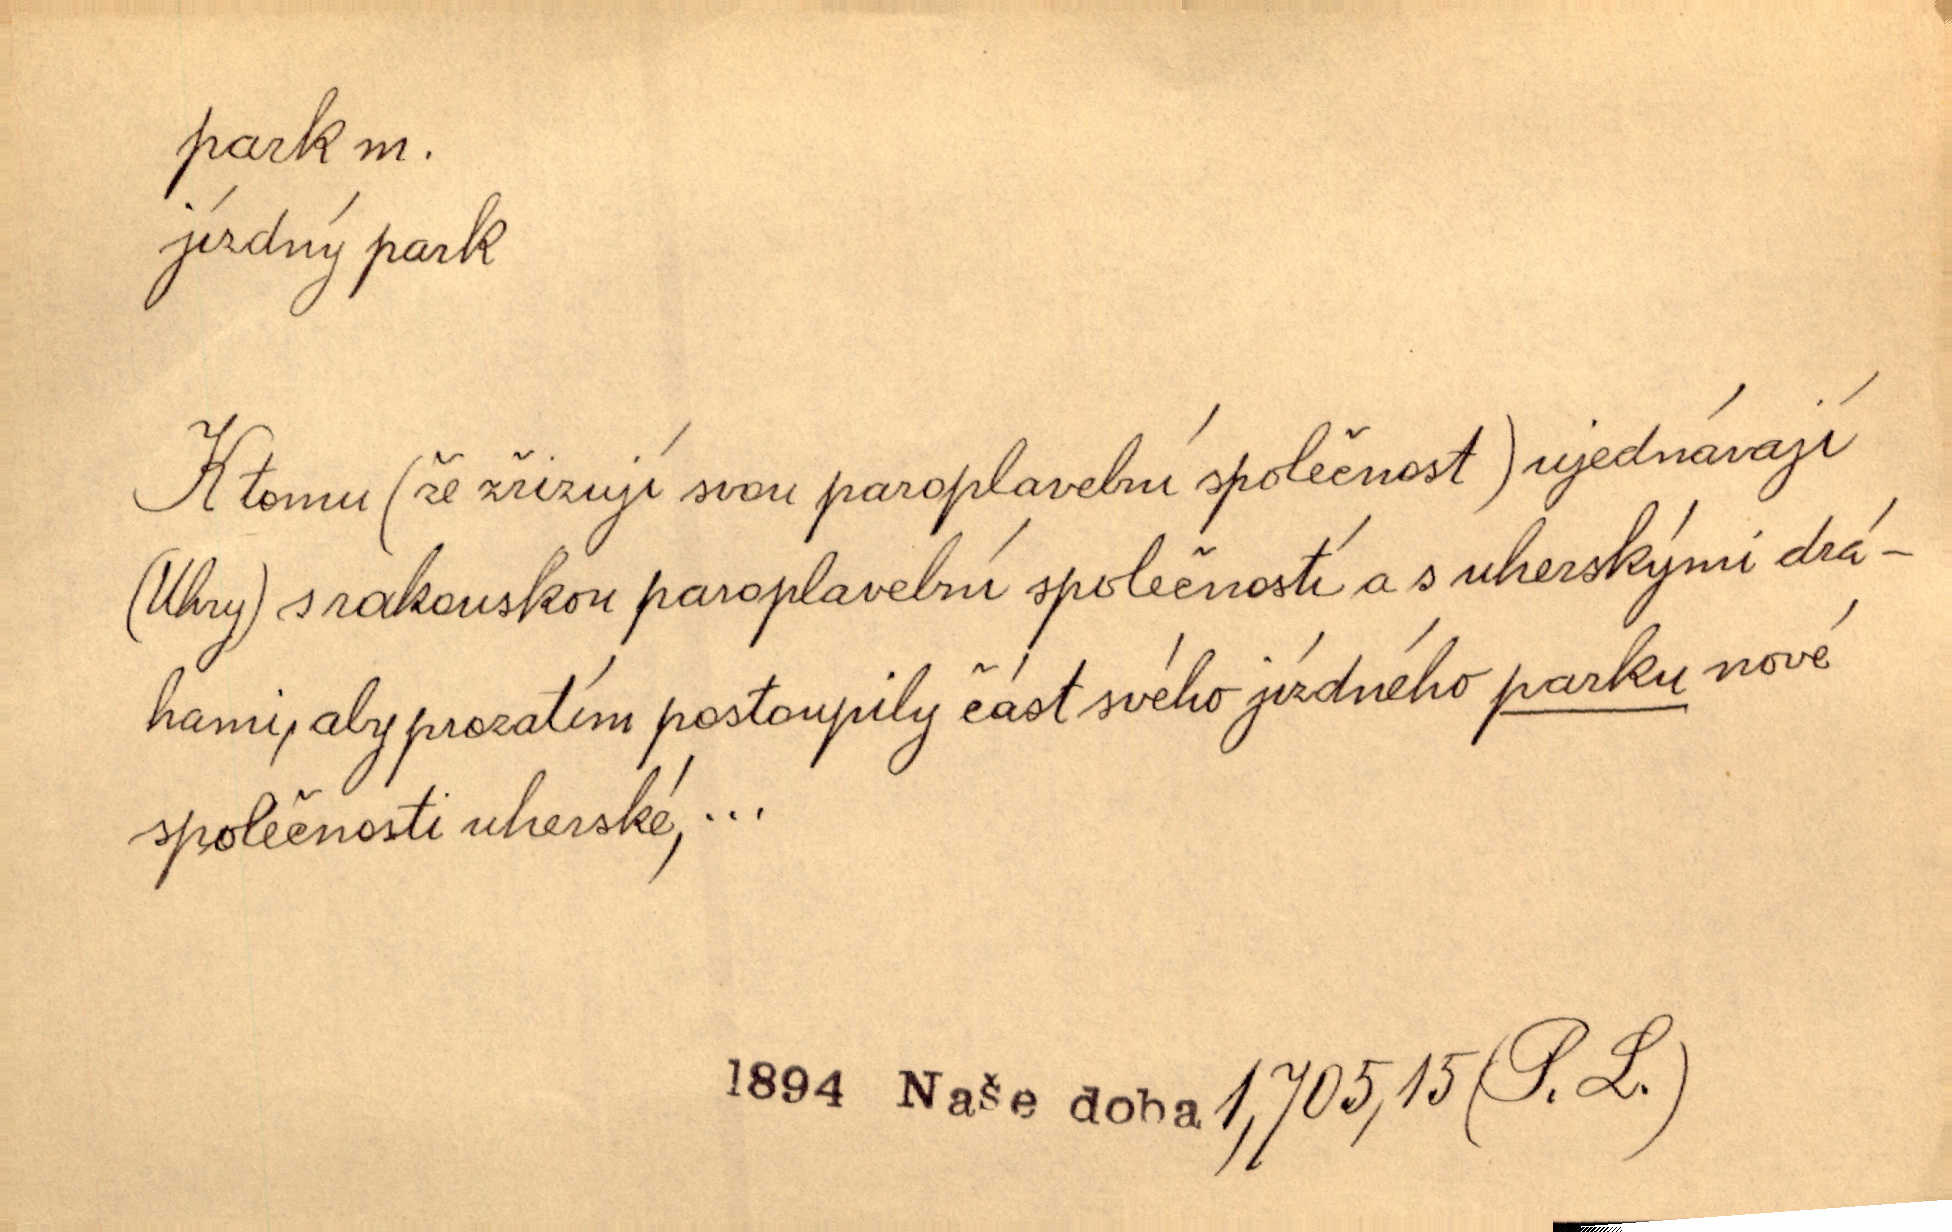 park m.
jízdný park
K tomu (že zřizují svou paroplavební společnost) ujednávají
(Uhry) s rakouskou paroplavební společností a s uherskými drá-
hami, aby prozatím postoupily část svého jízdného parku nové
společnosti uherské, ...
1894 Naše doba 1,705,15 (P. L.)